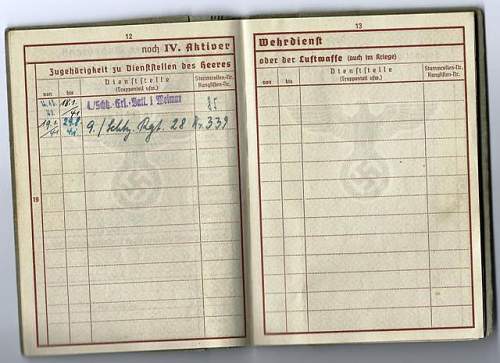 12
noch IV. Aktiver
Zugehörigkeit zu Dienststellen des Heeres
von
bis
Dienststelle
(Truppenteil usw.)
Stammrollen-Nr.
Ranglisten-Nr.
18.1.
41
4./Schtz.-Ers.-Batl. 1 Weimar
85
19.1.
41
9./Schtz. Rgt. 28 Nr. 339
19
13
Wehrdienst
oder der Luftwaffe (auch im Kriege)
von
bis
Dienststelle
(Truppenteil usw.)
Stammrollen-Nr.
Ranglisten-Nr.